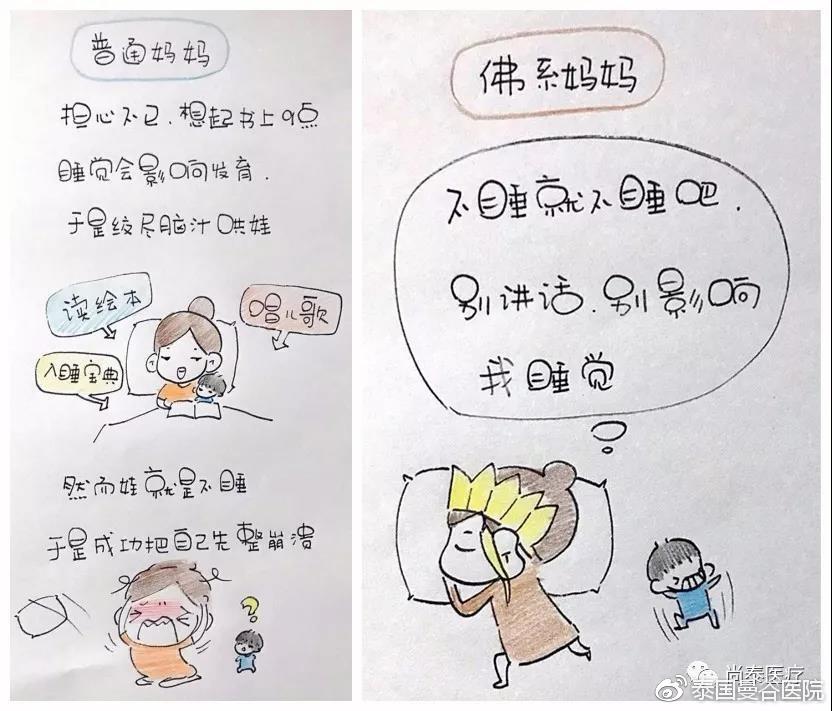 普通妈妈
担心不已,想起书上9点
睡觉会影响发育.
于是绞尽脑汁哄娃
读绘本
唱儿歌
入睡宝典
然而娃就是不睡
于是成功把自己先整崩溃
?
佛系妈妈
不睡就不睡吧.
别讲话.别影响
我睡觉
尚泰医疗
@泰国曼谷医院